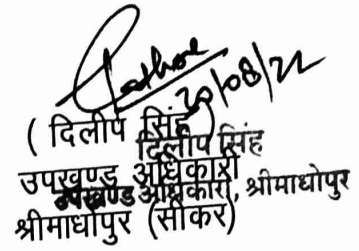 Rathore
20/08/22
( दिलीप सिंह )
दिलीप सिंह
उपखण्ड अधिकारी
उपखण्ड अधिकारी, श्रीमाधोपुर
श्रीमाधोपुर (सीकर)